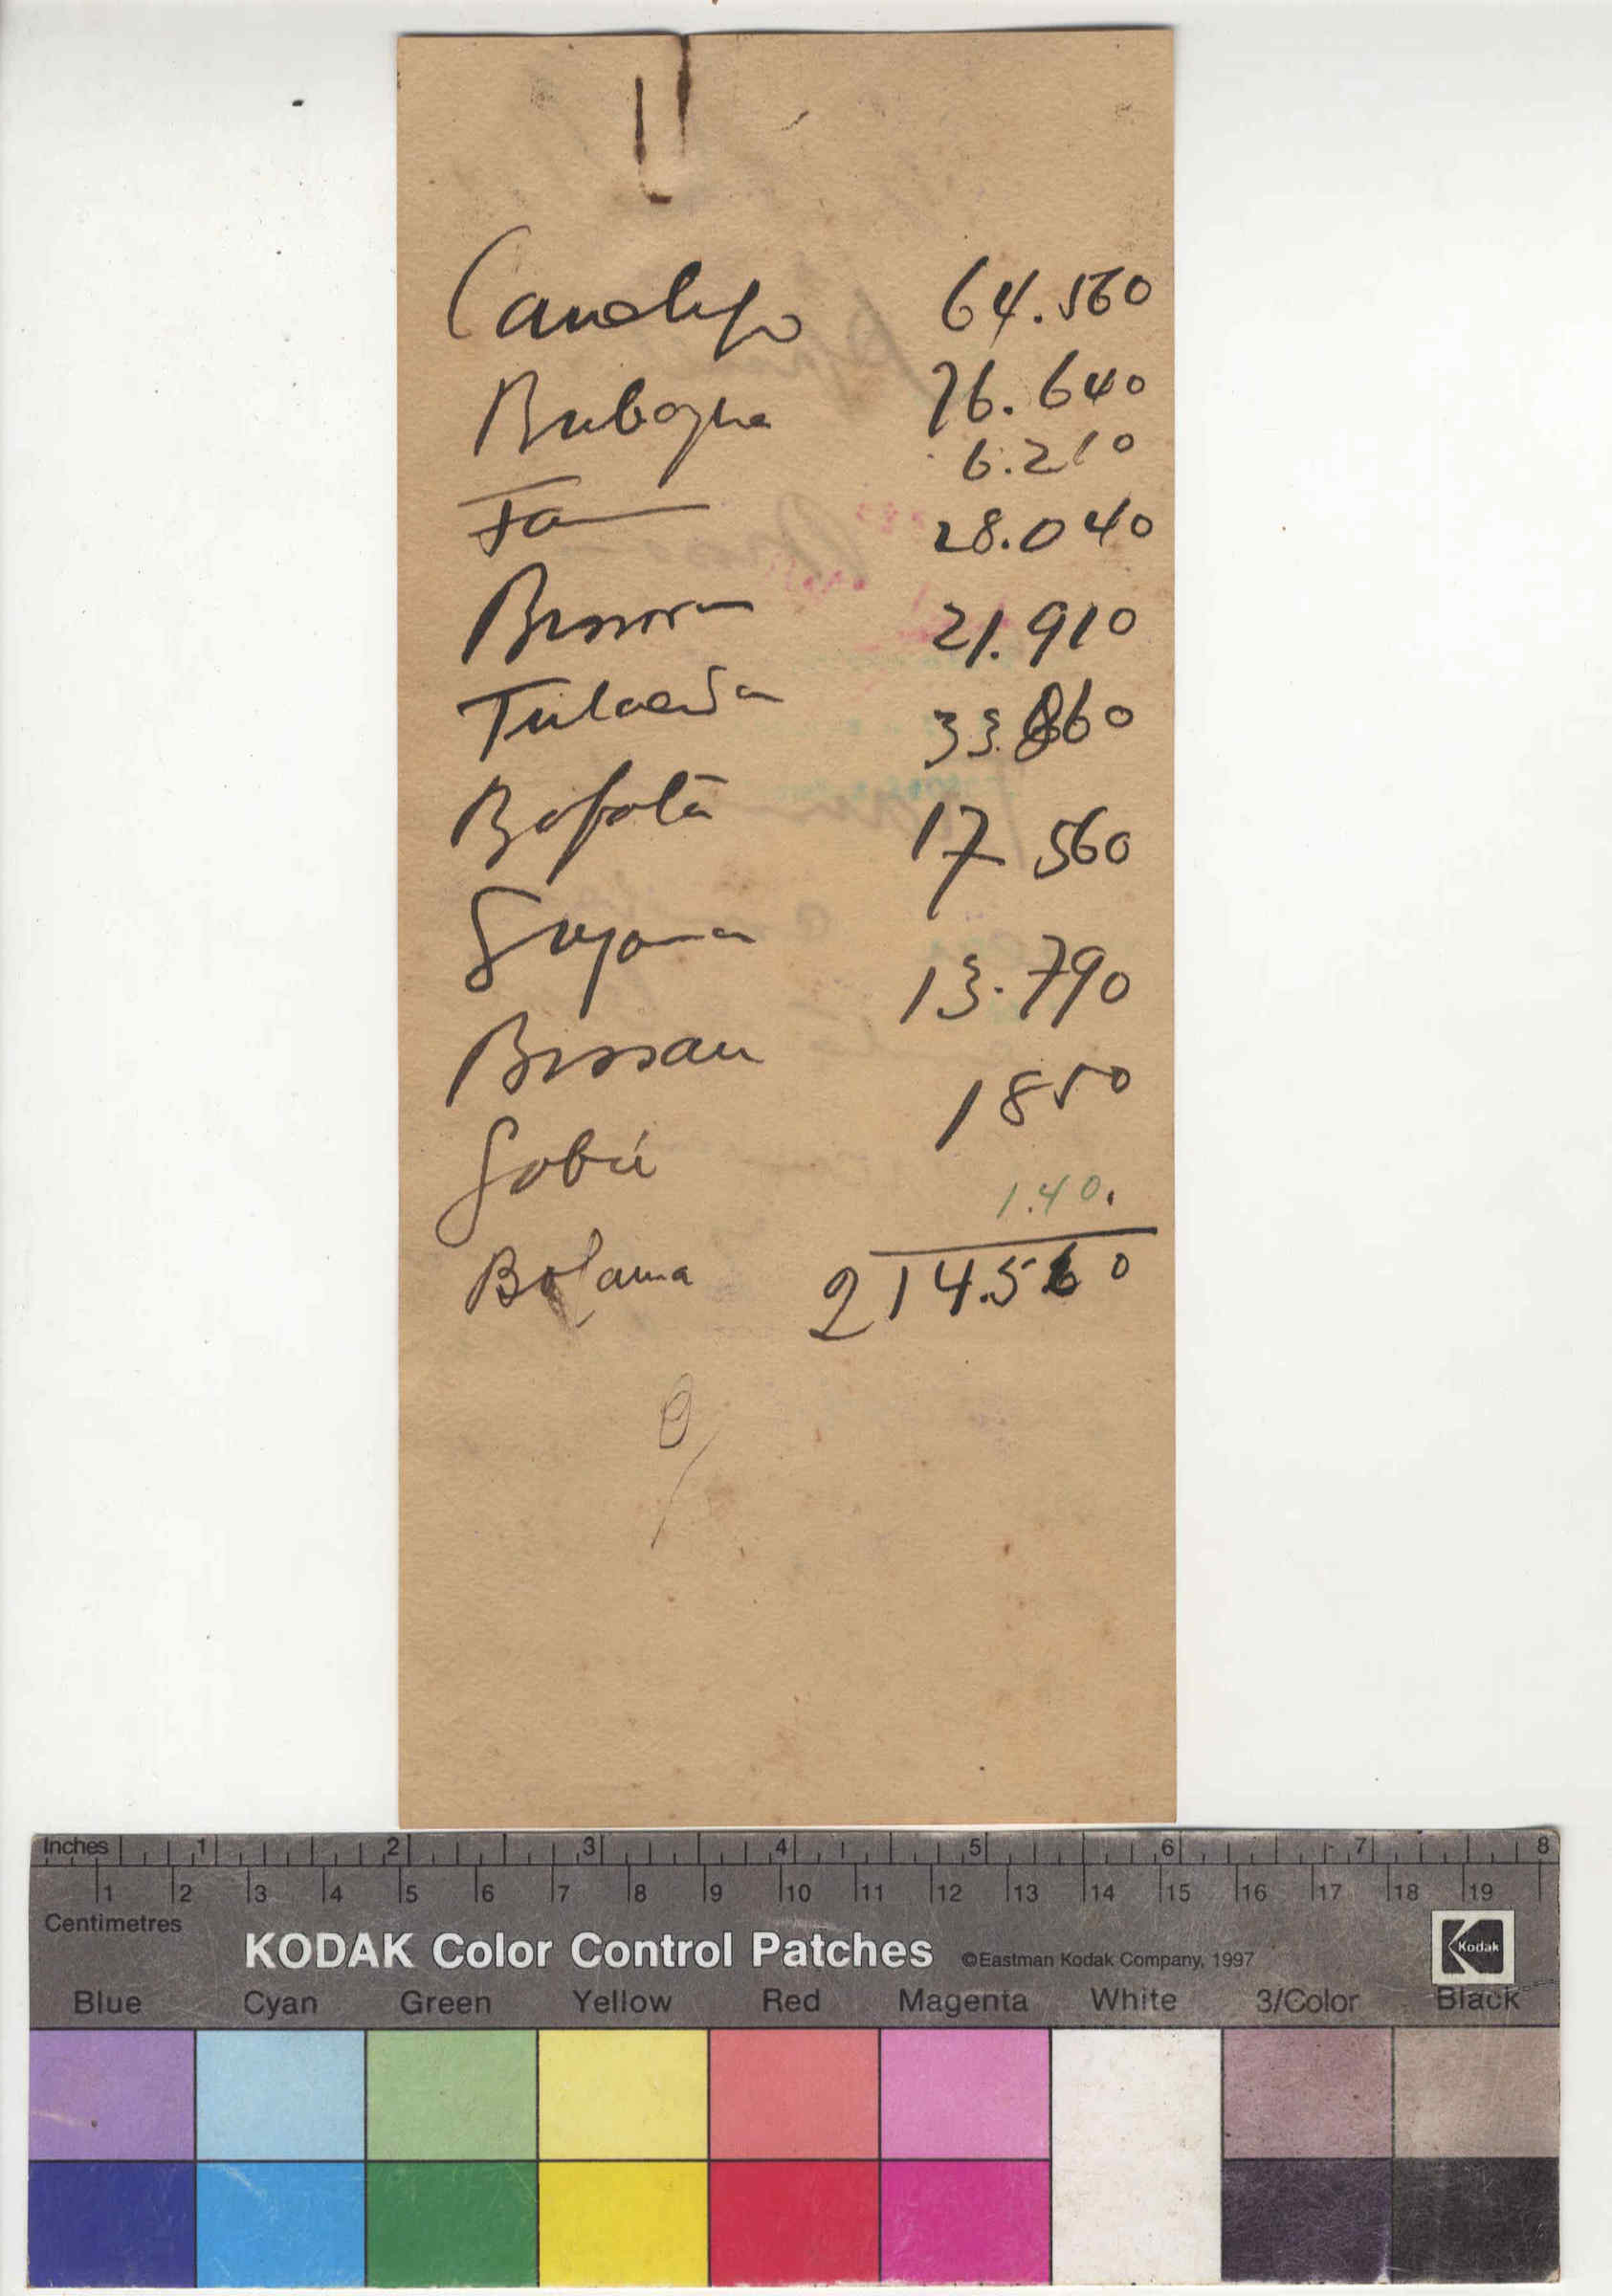 64.560
26.640
6.210
Fa
28.040
Bissorã
21.910
33.860
Bafatá
17 560
13.790
Bissau
1850
Gabú
1.40.
Bolama 214.560
Inches 1 2 3 4 5 6 7 8
1 2 3 4 5 6 7 8 9 10 11 12 13 14 15 16 17 18 19
Centimetres
KODAK Color Control Patches ©Eastman Kodak Company, 1997 Kodak
Blue Cyan Green Yellow Red Magenta White 3/Color Black